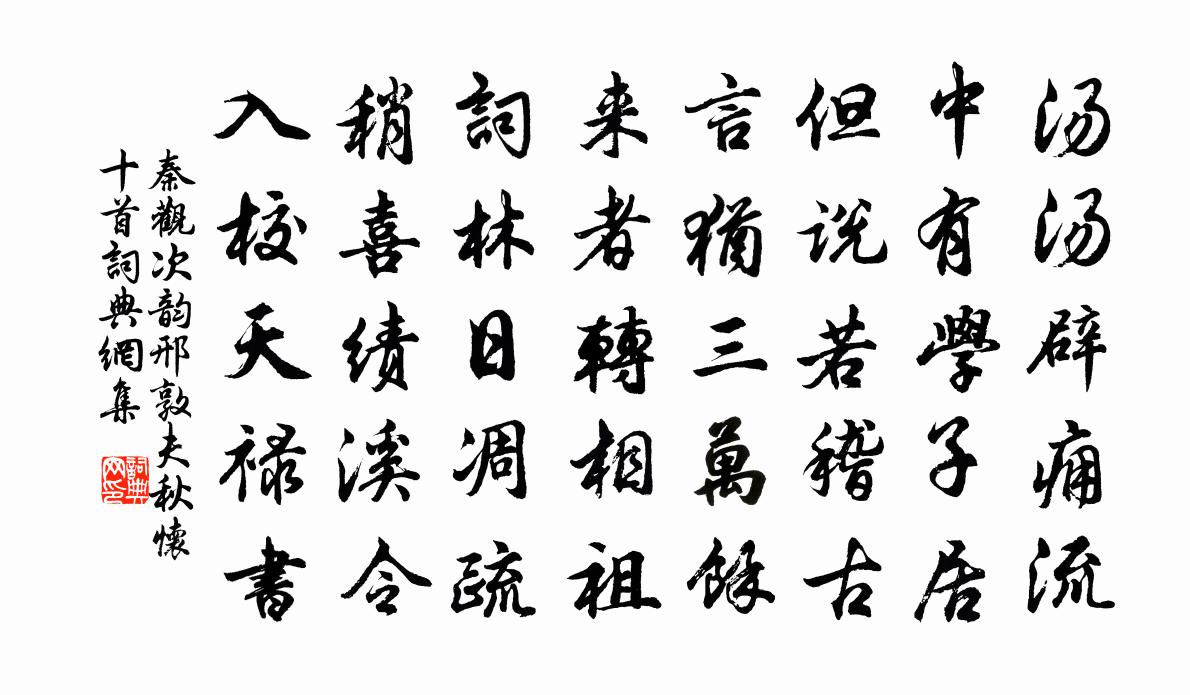 汤汤辟痈流
中有學子居
但说若稽古
言猶三萬餘
来者轉相祖
詞林日凋疏
稍喜绩溪令
入校天禄書
秦觀次韵邢敦夫秋懷
十首詞典網集
詞典網印